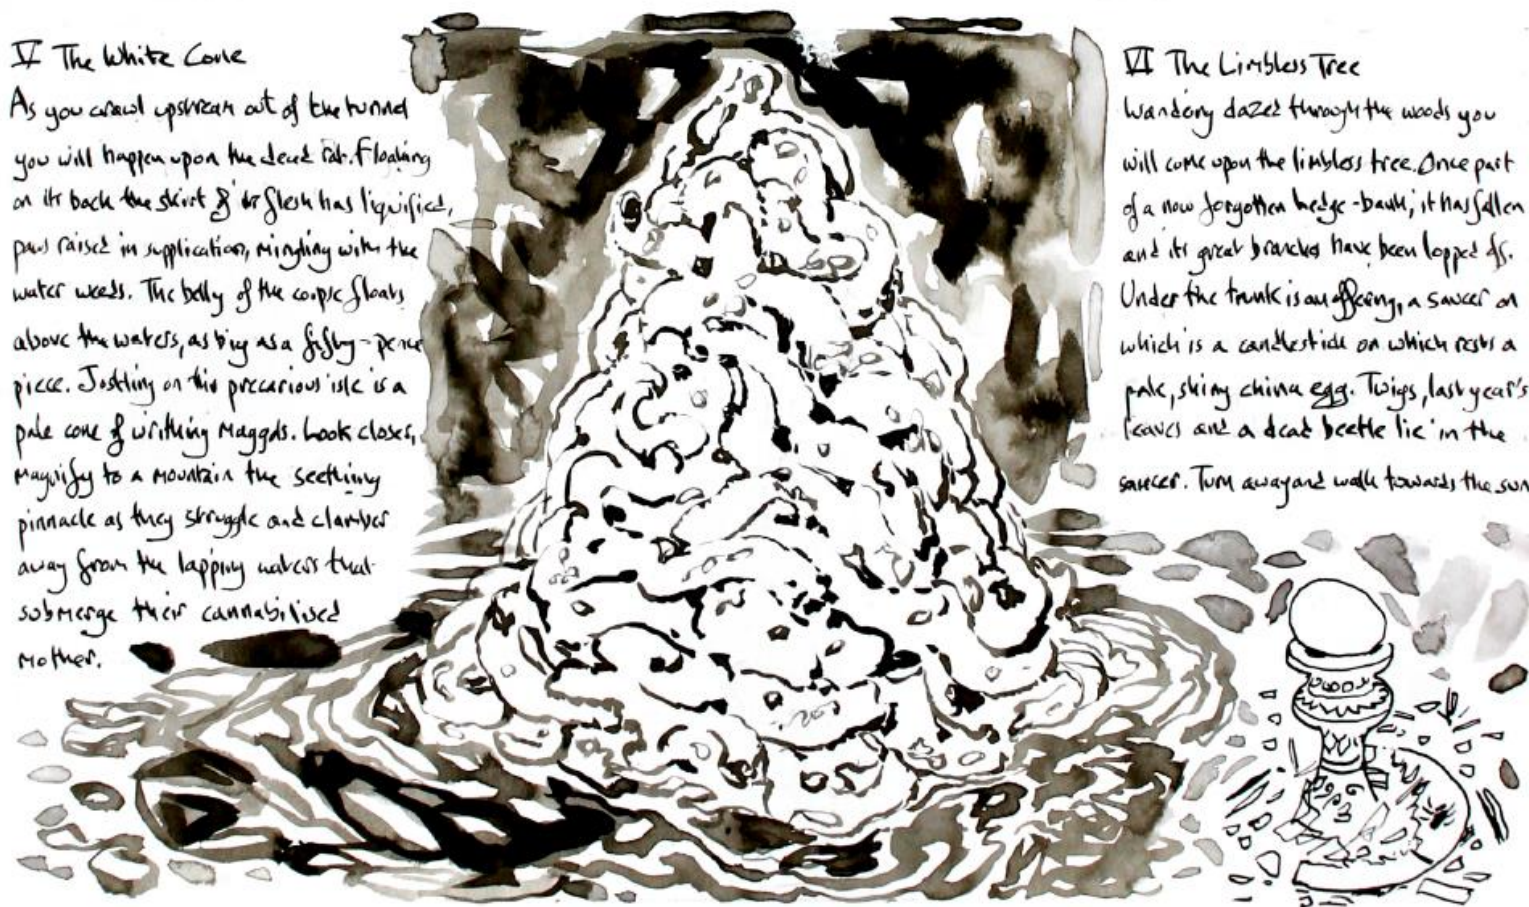 V The White Cone
As you crawl upstream out of the tunnel
you will happen upon the dead rat. Floating
on its back the skirt of its flesh has liquified,
paws raised in supplication, mingling with the
water weeds. The belly of the corpse floats
above the waters, as big as a fifty-pence
piece. Jostling on this precarious isle is a
pale cone of writhing maggots. Look closer,
magnify to a mountain the seething
pinnacle as they struggle and clamber
away from the lapping waters that
submerge their cannabilised
mother.
VI The Limbless Tree
Wandering dazed through the woods you
will come upon the limbless tree. Once part
of a now forgotten hedge-bank, it has fallen
and its great branches have been lopped off.
Under the trunk is an offering, a saucer on
which is a candlestick on which rests a
pale, shiny china egg. Twigs, last year's
leaves and a dead beetle lie in the
saucer. Turn away and walk towards the sun